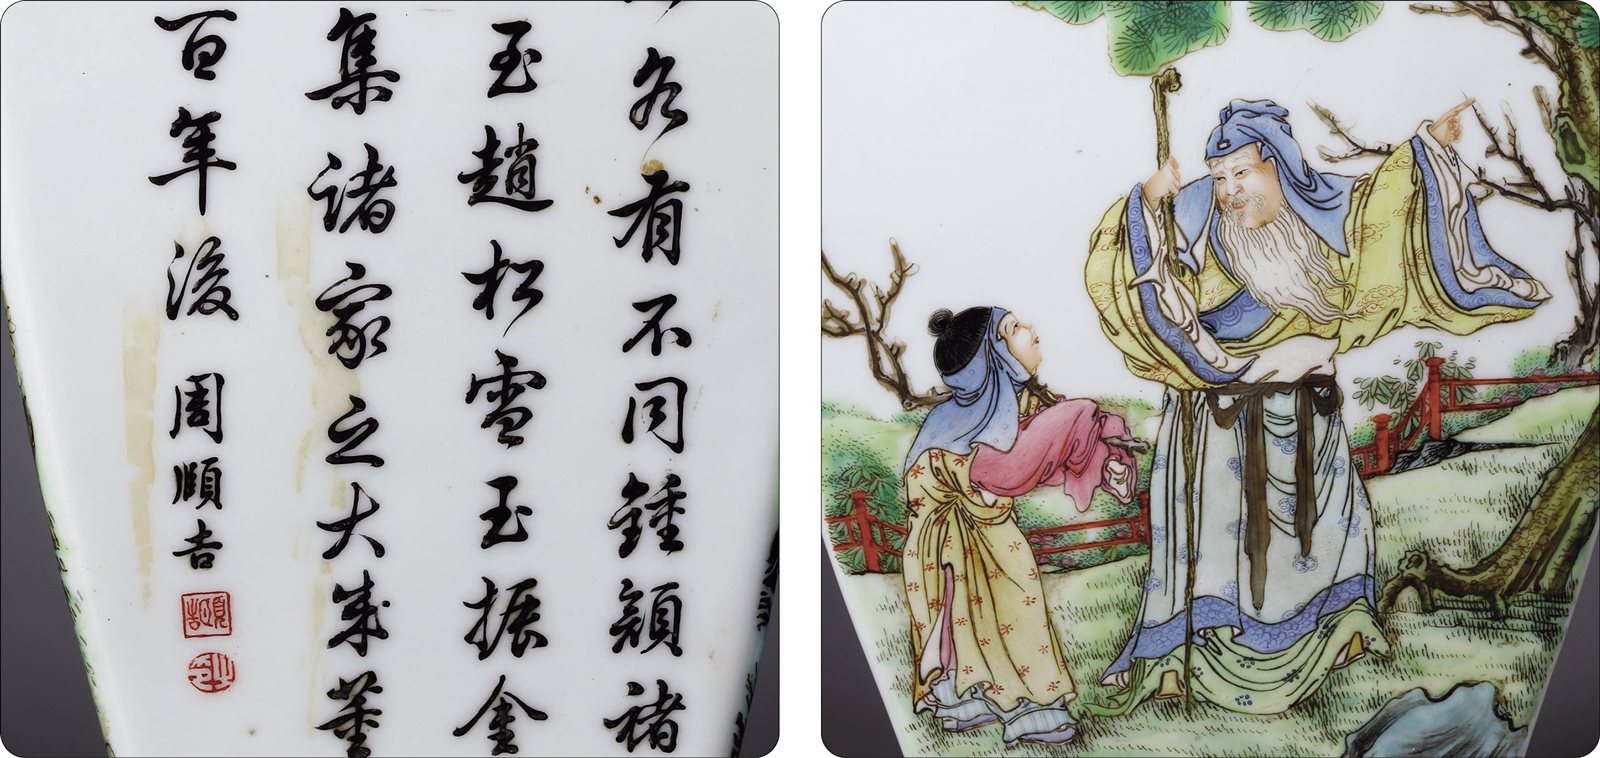 各有不同鍾穎褚
玉趙松雪玉振金
集諸家之大成董
百年後 周頤吉